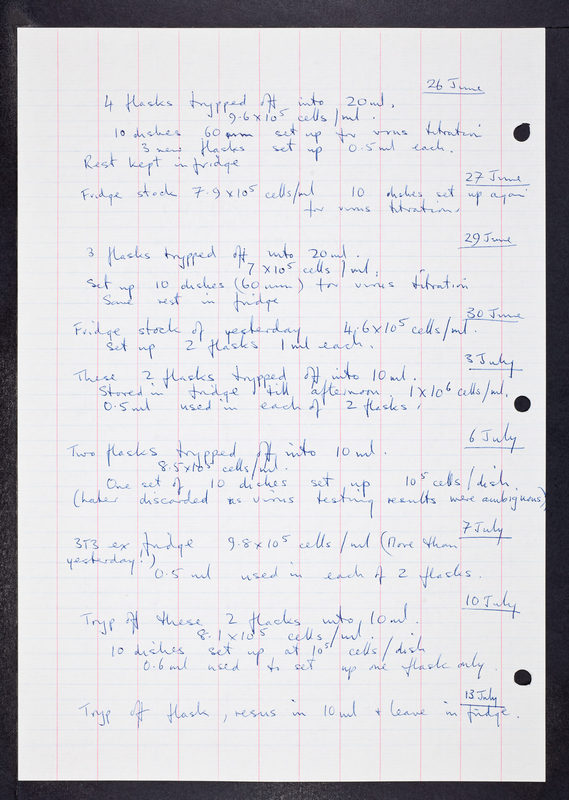 26 June
4 flasks trypped off into 20 ml.
9.6 x 10⁵ cells / ml.
10 dishes 60 mm set up for virus titration
3 new flasks set up 0.5 ml each.
Rest kept in fridge
27 June
Fridge stock 7.9 x 10⁵ cells/ml 10 dishes set up again
for virus titration.
29 June
3 flasks trypped off into 20 ml.
7 x 10⁵ cells / ml.
Set up 10 dishes (60 mm) for virus titration
Save rest in fridge
30 June
Fridge stock of yesterday 4.6 x 10⁵ cells/ml.
Set up 2 flasks 1 ml each.
3 July
These 2 flasks trypped off into 10 ml.
Stored in fridge till afternoon. 1 x 10⁶ cells/ml.
0.5 ml used in each of 2 flasks.
6 July
Two flasks trypped off into 10 ml.
8.5 x 10⁵ cells/ml.
One set of 10 dishes set up 10⁵ cells / dish.
(Later discarded as virus testing results were ambiguous)
7 July
3T3 ex fridge 9.8 x 10⁵ cells / ml (More than
yesterday!)
0.5 ml used in each of 2 flasks.
10 July
Tryp off these 2 flasks into 10 ml.
8.1 x 10⁵ cells / ml.
10 dishes set up at 10⁵ cells / dish
0.6 ml used to set up one flask only.
13 July
Tryp off flask, resus in 10 ml + leave in fridge.